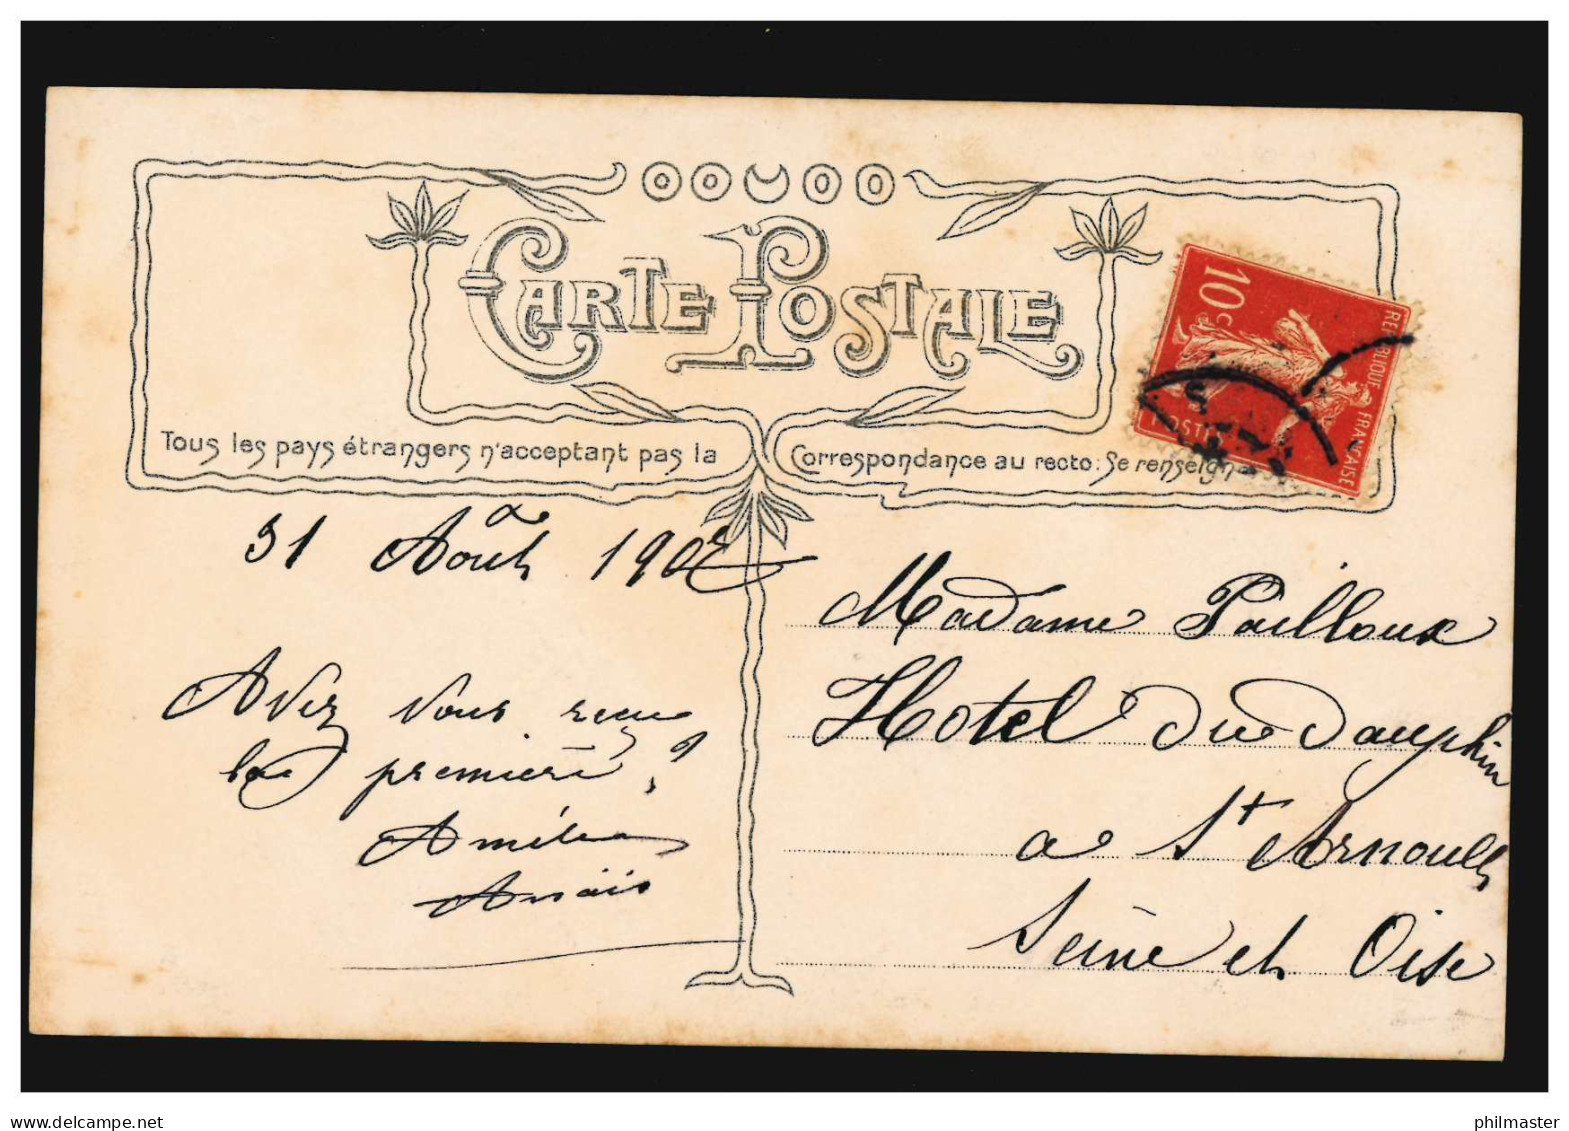 CARTE POSTALE
10c
REPUBLIQUE FRANÇAISE
POSTES
Tous les pays étrangers n'acceptant pas la Correspondance au recto: Se renseign
31 Août
Avez vous reçu
la première ?
Amélie
Anaïs
Madame Pailloux
Hotel du Dauphin
a St Arnoult
Seine et Oise
delcampe.net
philmaster